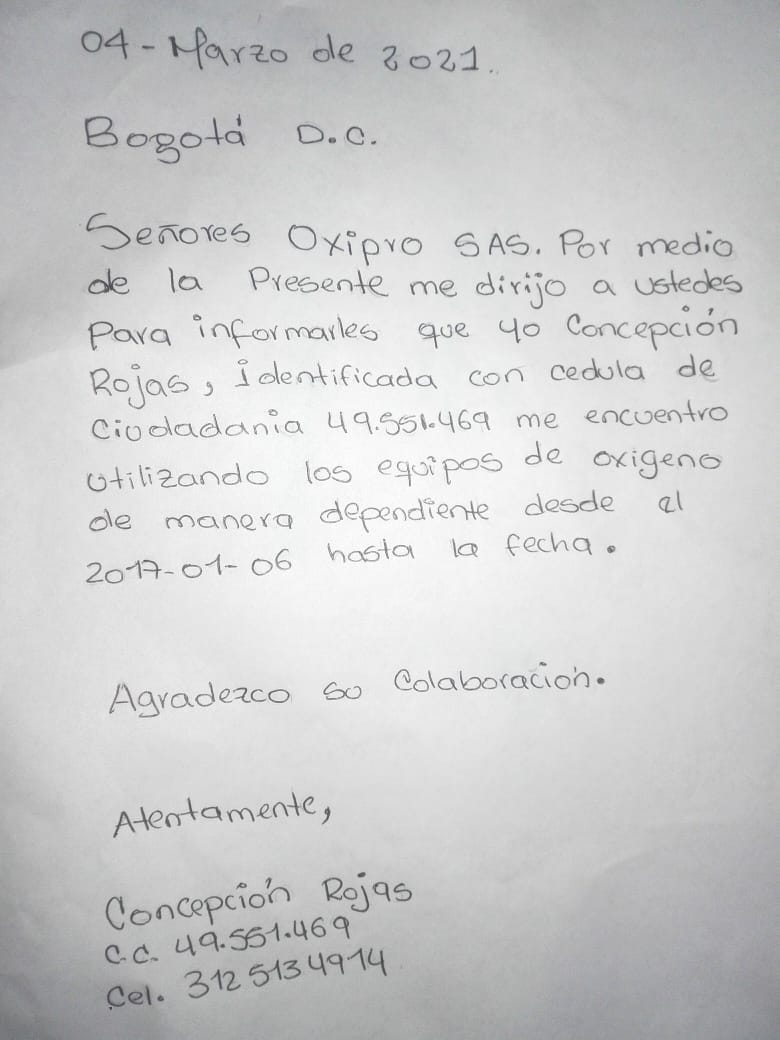 04 - Marzo de 2021.
Bogotá D.C.
Señores Oxipro SAS. Por medio
de la Presente me dirijo a ustedes
Para informarles que yo Concepción
Rojas, identificada con cedula de
Ciudadania 49.551.469 me encuentro
utilizando los equipos de oxigeno
de manera dependiente desde el
2017-01-06 hasta la fecha.
Agradezco su Colaboración.
Atentamente,
Concepción Rojas
C.C. 49.551.469
Cel. 312 513 4914